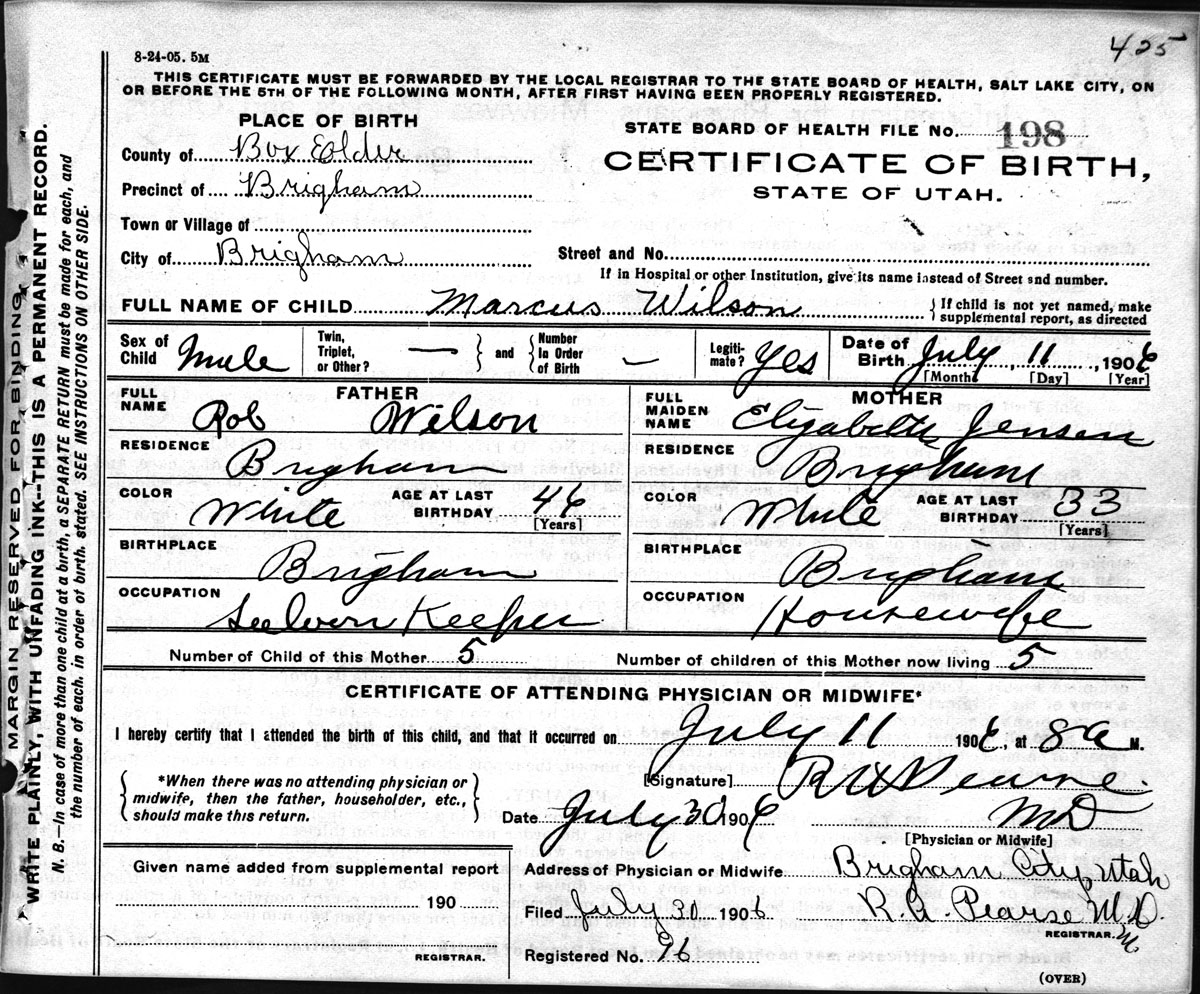 425
8-24-05. 5M
THIS CERTIFICATE MUST BE FORWARDED BY THE LOCAL REGISTRAR TO THE STATE BOARD OF HEALTH, SALT LAKE CITY, ON
OR BEFORE THE 5TH OF THE FOLLOWING MONTH, AFTER FIRST HAVING BEEN PROPERLY REGISTERED.
PLACE OF BIRTH
STATE BOARD OF HEALTH FILE No. 198
County of Box Elder
CERTIFICATE OF BIRTH,
Precinct of Brigham
STATE OF UTAH.
Town or Village of
City of Brigham
Street and No.
If in Hospital or other Institution, give its name instead of Street and number.
FULL NAME OF CHILD Marcus Wilson
{ If child is not yet named, make
supplemental report, as directed
Sex of Child Male
Twin, Triplet, or Other? — } and { Number In Order of Birth —
Legiti-mate? Yes
Date of Birth July, 11, 1906
[Month] [Day] [Year]
FATHER
FULL NAME Rob Wilson
RESIDENCE Brigham
COLOR White AGE AT LAST BIRTHDAY 46
[Years]
BIRTHPLACE Brigham
OCCUPATION Seloon Keeper
MOTHER
FULL MAIDEN NAME Elizabeth Jensen
RESIDENCE Brigham
COLOR White AGE AT LAST BIRTHDAY 33
[Years]
BIRTHPLACE Brigham
OCCUPATION Housewife
Number of Child of this Mother 5 Number of children of this Mother now living 5
CERTIFICATE OF ATTENDING PHYSICIAN OR MIDWIFE*
I hereby certify that I attended the birth of this child, and that it occurred on July 11 1906, at 8 a M.
{ *When there was no attending physician or
midwife, then the father, householder, etc.,
should make this return. }
[Signature]
Date July 30 1906 MD
[Physician or Midwife]
Given name added from supplemental report
190
REGISTRAR.
Address of Physician or Midwife Brigham City, Utah
Filed July 30 1906 R. A. Pearse M.D.
REGISTRAR.
Registered No. 96
(OVER)
MARGIN RESERVED FOR BINDING
WRITE PLAINLY, WITH UNFADING INK--THIS IS A PERMANENT RECORD.
N. B.—In case of more than one child at a birth, a SEPARATE RETURN must be made for each, and
the number of each, in order of birth, stated. SEE INSTRUCTIONS ON OTHER SIDE.